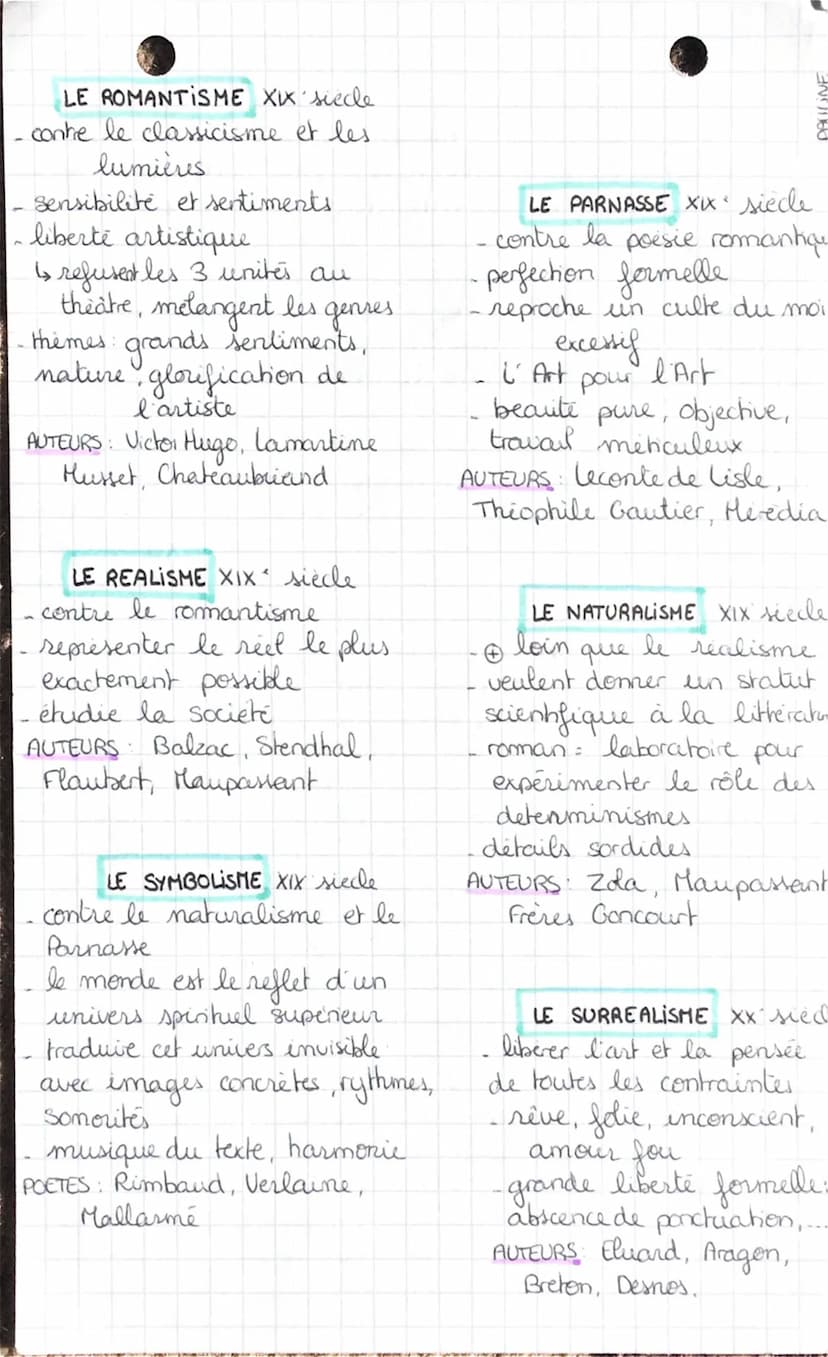 LE ROMANTISME XIXe siècle
- contre le classicisme et les
lumières
- sensibilité et sentiments
- liberté artistique
↳ refusent les 3 unités au
théâtre, mélangent les genres
- thèmes : grands sentiments,
nature, glorification de
l'artiste
AUTEURS : Victor Hugo, Lamartine
Musset, Chateaubriand
LE REALISME XIXe siècle
- contre le romantisme
- représenter le réel le plus
exactement possible
- étudie la société
AUTEURS : Balzac, Stendhal,
Flaubert, Maupassant
LE SYMBOLISME XIXe siecle
- contre le naturalisme et le
Parnasse
- le monde est le reflet d'un
univers spirituel supérieur
- traduire cet univers invisible
avec images concrètes, rythmes,
sonorités
- musique du texte, harmonie
POETES : Rimbaud, Verlaine,
Mallarmé
PAULINE
LE PARNASSE XIXe siècle
- contre la poésie romantique
- perfection formelle
- reproche un culte du moi
excessif
- L'Art pour l'Art
- beauté pure, objective,
travail méticuleux
AUTEURS : Leconte de Lisle,
Théophile Gautier, Heredia
LE NATURALISME XIXe siecle
- ⊕ loin que le réalisme
- veulent donner un statut
scientifique à la littératur
- roman = laboratoire pour
expérimenter le rôle des
determinismes
- détails sordides
AUTEURS : Zola, Maupassant
Frères Goncourt
LE SURREALISME XXe siècl
- libérer l'art et la pensée
de toutes les contraintes
- rêve, folie, inconscient,
amour fou
- grande liberté formelle :
abscence de ponctuation,...
AUTEURS : Eluard, Aragon,
Breton, Desnos.